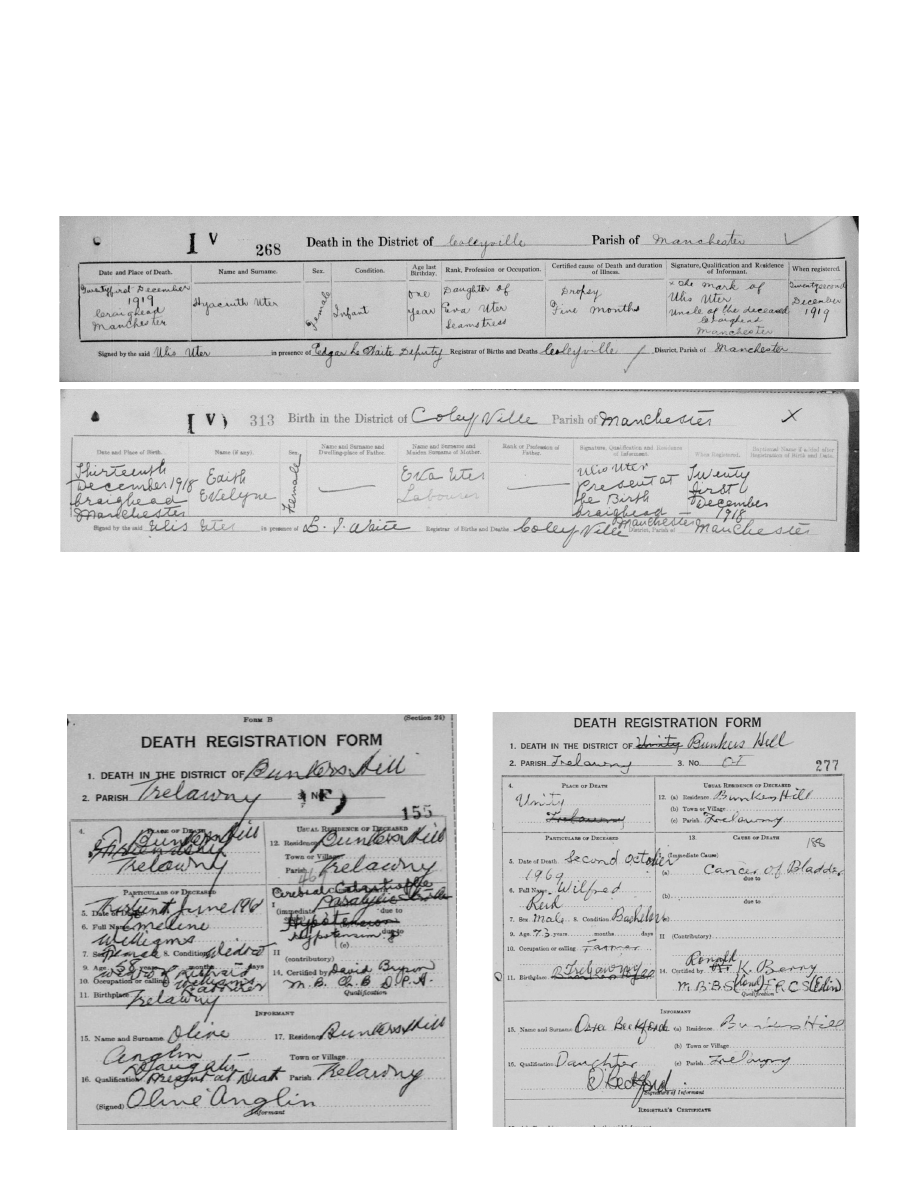 I V 268 Death in the District of Coleyville Parish of Manchester
Date and Place of Death. Name and Surname. Sex. Condition. Age last Birthday. Rank, Profession or Occupation. Certified cause of Death and duration of Illness. Signature, Qualification and Residence of Informant. When registered.
Twentyfirst December 1919 Craighead Manchester
Hyacinth Uter
Female
Infant
One year
Daughter of Eva Uter Seamstress
Dropsy Five Months
x the mark of Ulis Uter Uncle of the deceased Craighead Manchester
Twentysecond December 1919
Signed by the said Ulis Uter in presence of Edgar Le Waite Deputy Registrar of Births and Deaths Coleyville District, Parish of Manchester
[ V ) 313 Birth in the District of Coley Ville Parish of Manchester X
Date and Place of Birth. Name (if any). Sex Name and Surname and Dwelling-place of Father. Name and Surname and Maiden Surname of Mother. Rank or Profession of Father. Signature, Qualification and Residence of Informant. When Registered. Baptismal Name if added after Registration of Birth and Date.
Thirteenth December 1918 Craighead Manchester
Edith Evelyne
Female
Eva Uter Labourer
Ulis Uter Present at the Birth Craighead Manchester
Twenty first December 1918
Signed by the said Ulis Uter in presence of L. J. Waite Registrar of Births and Deaths Coley Ville District, Parish of Manchester
FORM B (Section 24)
DEATH REGISTRATION FORM
1. DEATH IN THE DISTRICT OF Bunkers Hill
2. PARISH Trelawny 3. No F)
155
4. PLACE OF DEATH Bunkers Hill
Trelawny
USUAL RESIDENCE OF DECEASED
12. Residence Bunkers Hill
Town or Village
Parish Trelawny
PARTICULARS OF DECEASED
5. Date of Death Thirteenth June 196
6. Full Name Emeline Williams
7. Sex Female 8. Condition Widow
9. Age 58 years months days
10. Occupation or calling Widow of Williams Farmer
11. Birthplace Trelawny
I (immediate due to
Hypotension
Hypotension due to
(c)
II (contributory)
14. Certified by David Bryson
M. B. Ch. B D. P. H.
Qualification
INFORMANT
15. Name and Surname Olive Anglin
17. Residence Bunkers Hill
Town or Village
16. Qualification Daughter Present at Death Parish Trelawny
(Signed) Olive Anglin
Informant
DEATH REGISTRATION FORM
1. DEATH IN THE DISTRICT OF Unity Bunkers Hill
2. PARISH Trelawny 3. No. OI 277
4. PLACE OF DEATH
Unity
Trelawny
USUAL RESIDENCE OF DECEASED
12. (a) Residence Bunkers Hill
(b) Town or Village
(c) Parish Trelawny
PARTICULARS OF DECEASED 13. CAUSE OF DEATH 188
5. Date of Death Second October 1969
6. Full Name Wilfred Reid
7. Sex Male 8. Condition Bachelor
9. Age 73 years months days
10. Occupation or calling Farmer
11. Birthplace Trelawny
I (Immediate Cause)
(a) Cancer of Bladder
due to
(b)
due to
(c)
II (Contributory)
14. Certified by Ronald K. Barry
M. B. B S (Lond) F. R C S (Edin)
Qualification
INFORMANT
15. Name and Surname Beckford (a) Residence Bunkers Hill
(b) Town or Village
16. Qualification Daughter (c) Parish Trelawny
O Beckford
Signature of Informant
REGISTRAR'S CERTIFICATE